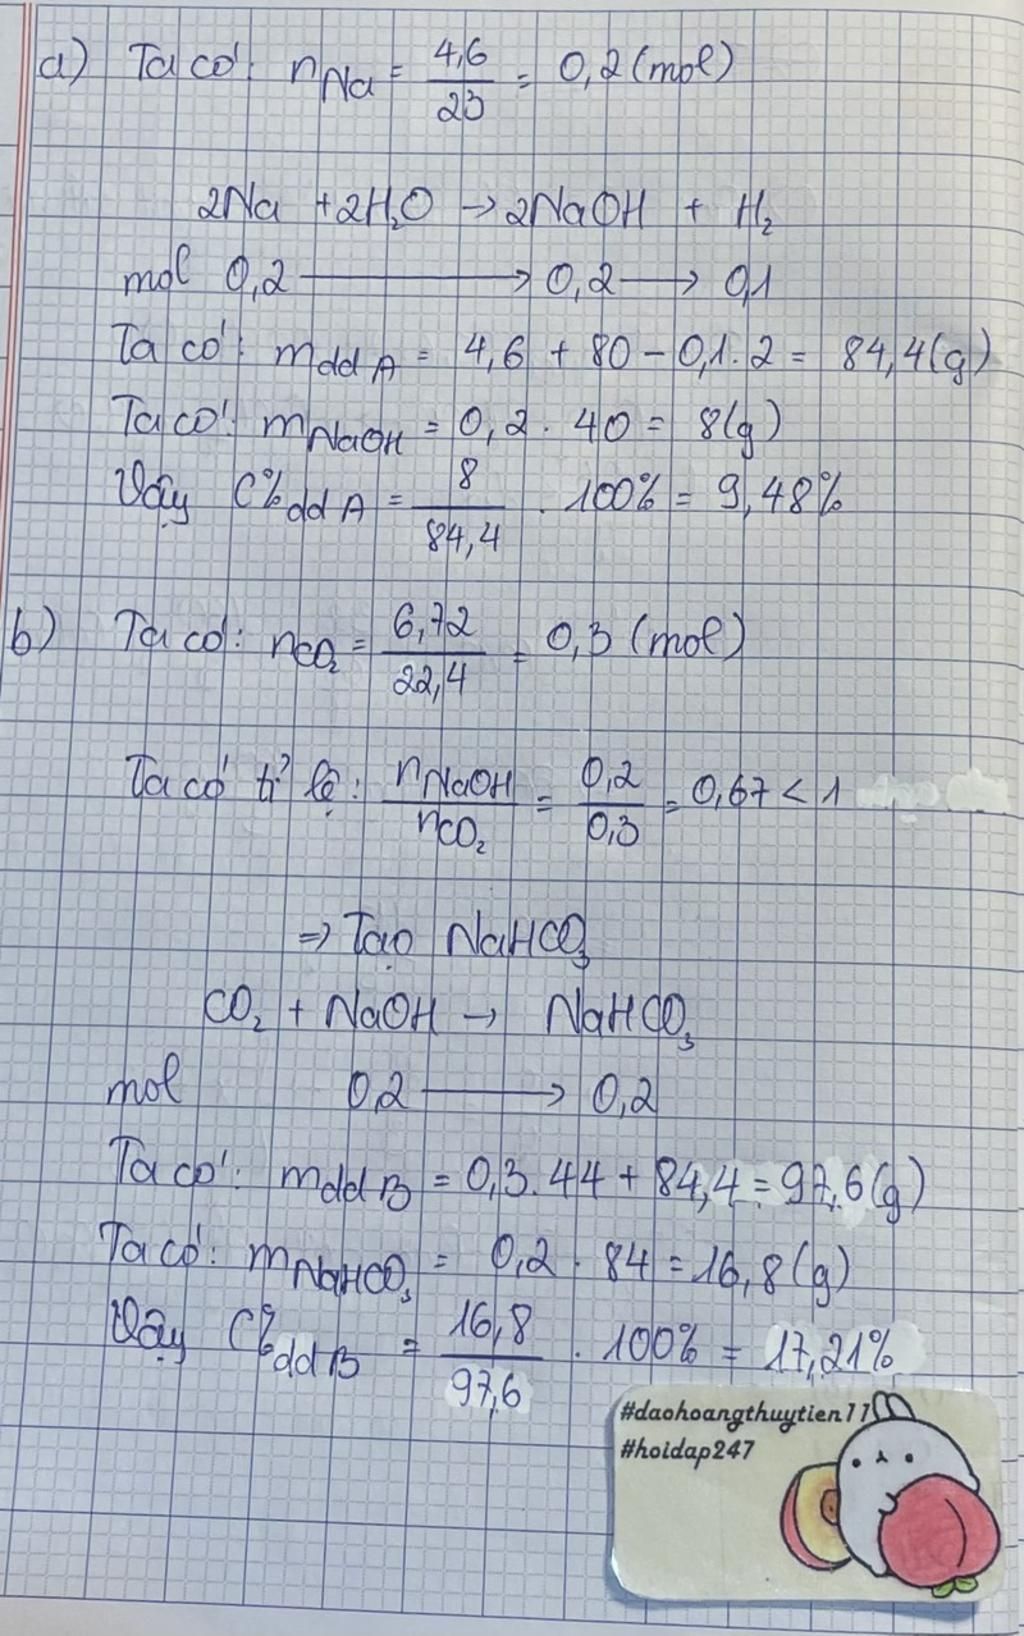 a) Ta có: nNa = 4,6/23 = 0,2 (mol)
2Na + 2H₂O → 2NaOH + H₂
mol 0,2 → 0,2 → 0,1
Ta có: mdd A = 4,6 + 80 - 0,1.2 = 84,4(g)
Ta có: mNaOH = 0,2 . 40 = 8(g)
Vậy C%dd A = 8/84,4 . 100% = 9,48%
b) Ta có: nCO₂ = 6,72/22,4 = 0,3 (mol)
Ta có tỉ lệ: nNaOH/nCO₂ = 0,2/0,3 = 0,67 < 1
⇒ Tạo NaHCO₃
CO₂ + NaOH → NaHCO₃
mol 0,2 → 0,2
Ta có: mdd B = 0,3.44 + 84,4 = 97,6(g)
Ta có: mNaHCO₃ = 0,2 . 84 = 16,8(g)
Vậy C%dd B = 16,8/97,6 . 100% = 17,21%
#daohoangthuytien11
#hoidap247